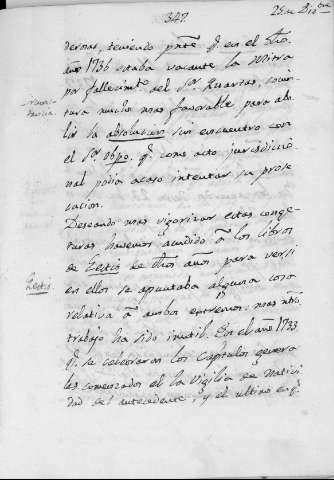 347.
25 de Diz.bre
derosas, teniendo pnte q. en el dho.
año 1736 estaba vacante la Mitra
por fallecimto. del Sor. Quartas, coiun-
tura mucho mas favorable para abo-
lir la absolucion sin encuentro con
el Sor. Obpo. q. como acto jurisdiccio-
nal podia acaso intentar su prose-
cucion.
Deseando mas vigorizar estas conge-
turas hauemos acudido a los libros
de Gestis de dhos años para ver si
en ellos se apuntaba alguna cosa
relativa a ambos extremos: mas ntro.
trabajo ha sido inutil. En el año 1733
q. se celebraron los Capitulos genera-
les comenzados el la Vigilia de Nativi-
dad del antecedente, y el ultimo en q.
Gestis.